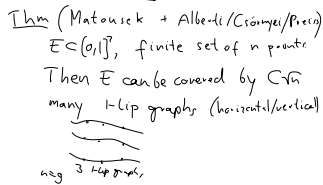 Thm (Matousek + Alberti/Csörnyei/Preiss)
E⊂[0,1]², finite set of n points.
Then E can be covered by C√n
many 1-Lip graphs (horizontal/vertical)
n=9 3 1-Lip graphs